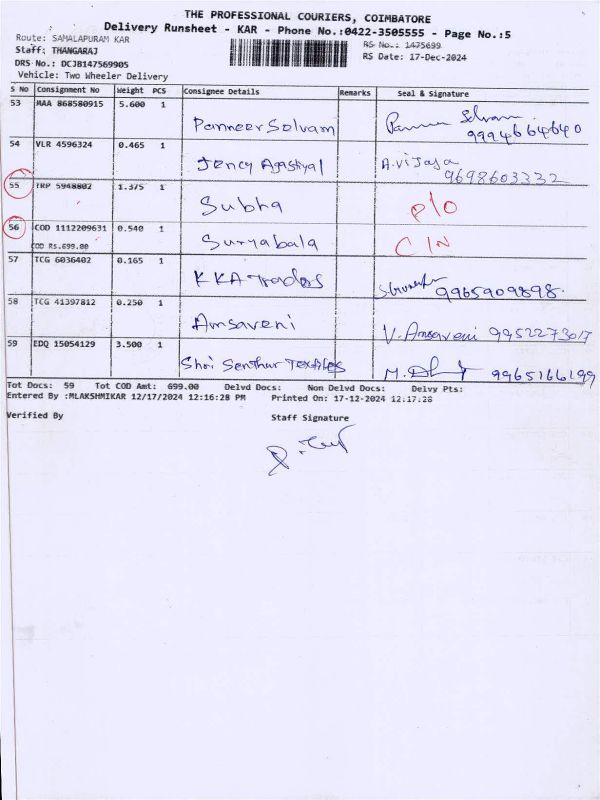 THE PROFESSIONAL COURIERS, COIMBATORE
Delivery Runsheet - KAR - Phone No.:0422-3505555 - Page No.:5
Route: SAMALAPURAM KAR
RS No.: 1475699
Staff: THANGARAJ
RS Date: 17-Dec-2024
DRS No.: DCJB147569905
Vehicle: Two Wheeler Delivery
S No Consignment No Weight PCS Consignee Details Remarks Seal & Signature
53 MAA 868580915 5.600 1 Panneer Selvam Selvam 9994664640
54 VLR 4596324 0.465 1 Jency Agastiyal A.Vijaya 9698603332
55 TRP 5948802 1.375 1 Subha P/O
56 COD 1112209631 0.540 1 Suryabala C/N
COD Rs.699.00
57 TCG 6036402 0.165 1 KKA Traders 9965909898.
58 TCG 41397812 0.250 1 Amsaveni V.Amsaveni 9952273017
59 EDQ 15054129 3.500 1 Shri Senthur Textiles 9965166199
Tot Docs: 59 Tot COD Amt: 699.00 Delvd Docs: Non Delvd Docs: Delvy Pts:
Entered By :MLAKSHMIKAR 12/17/2024 12:16:28 PM Printed On: 17-12-2024 12:17:28
Verified By Staff Signature